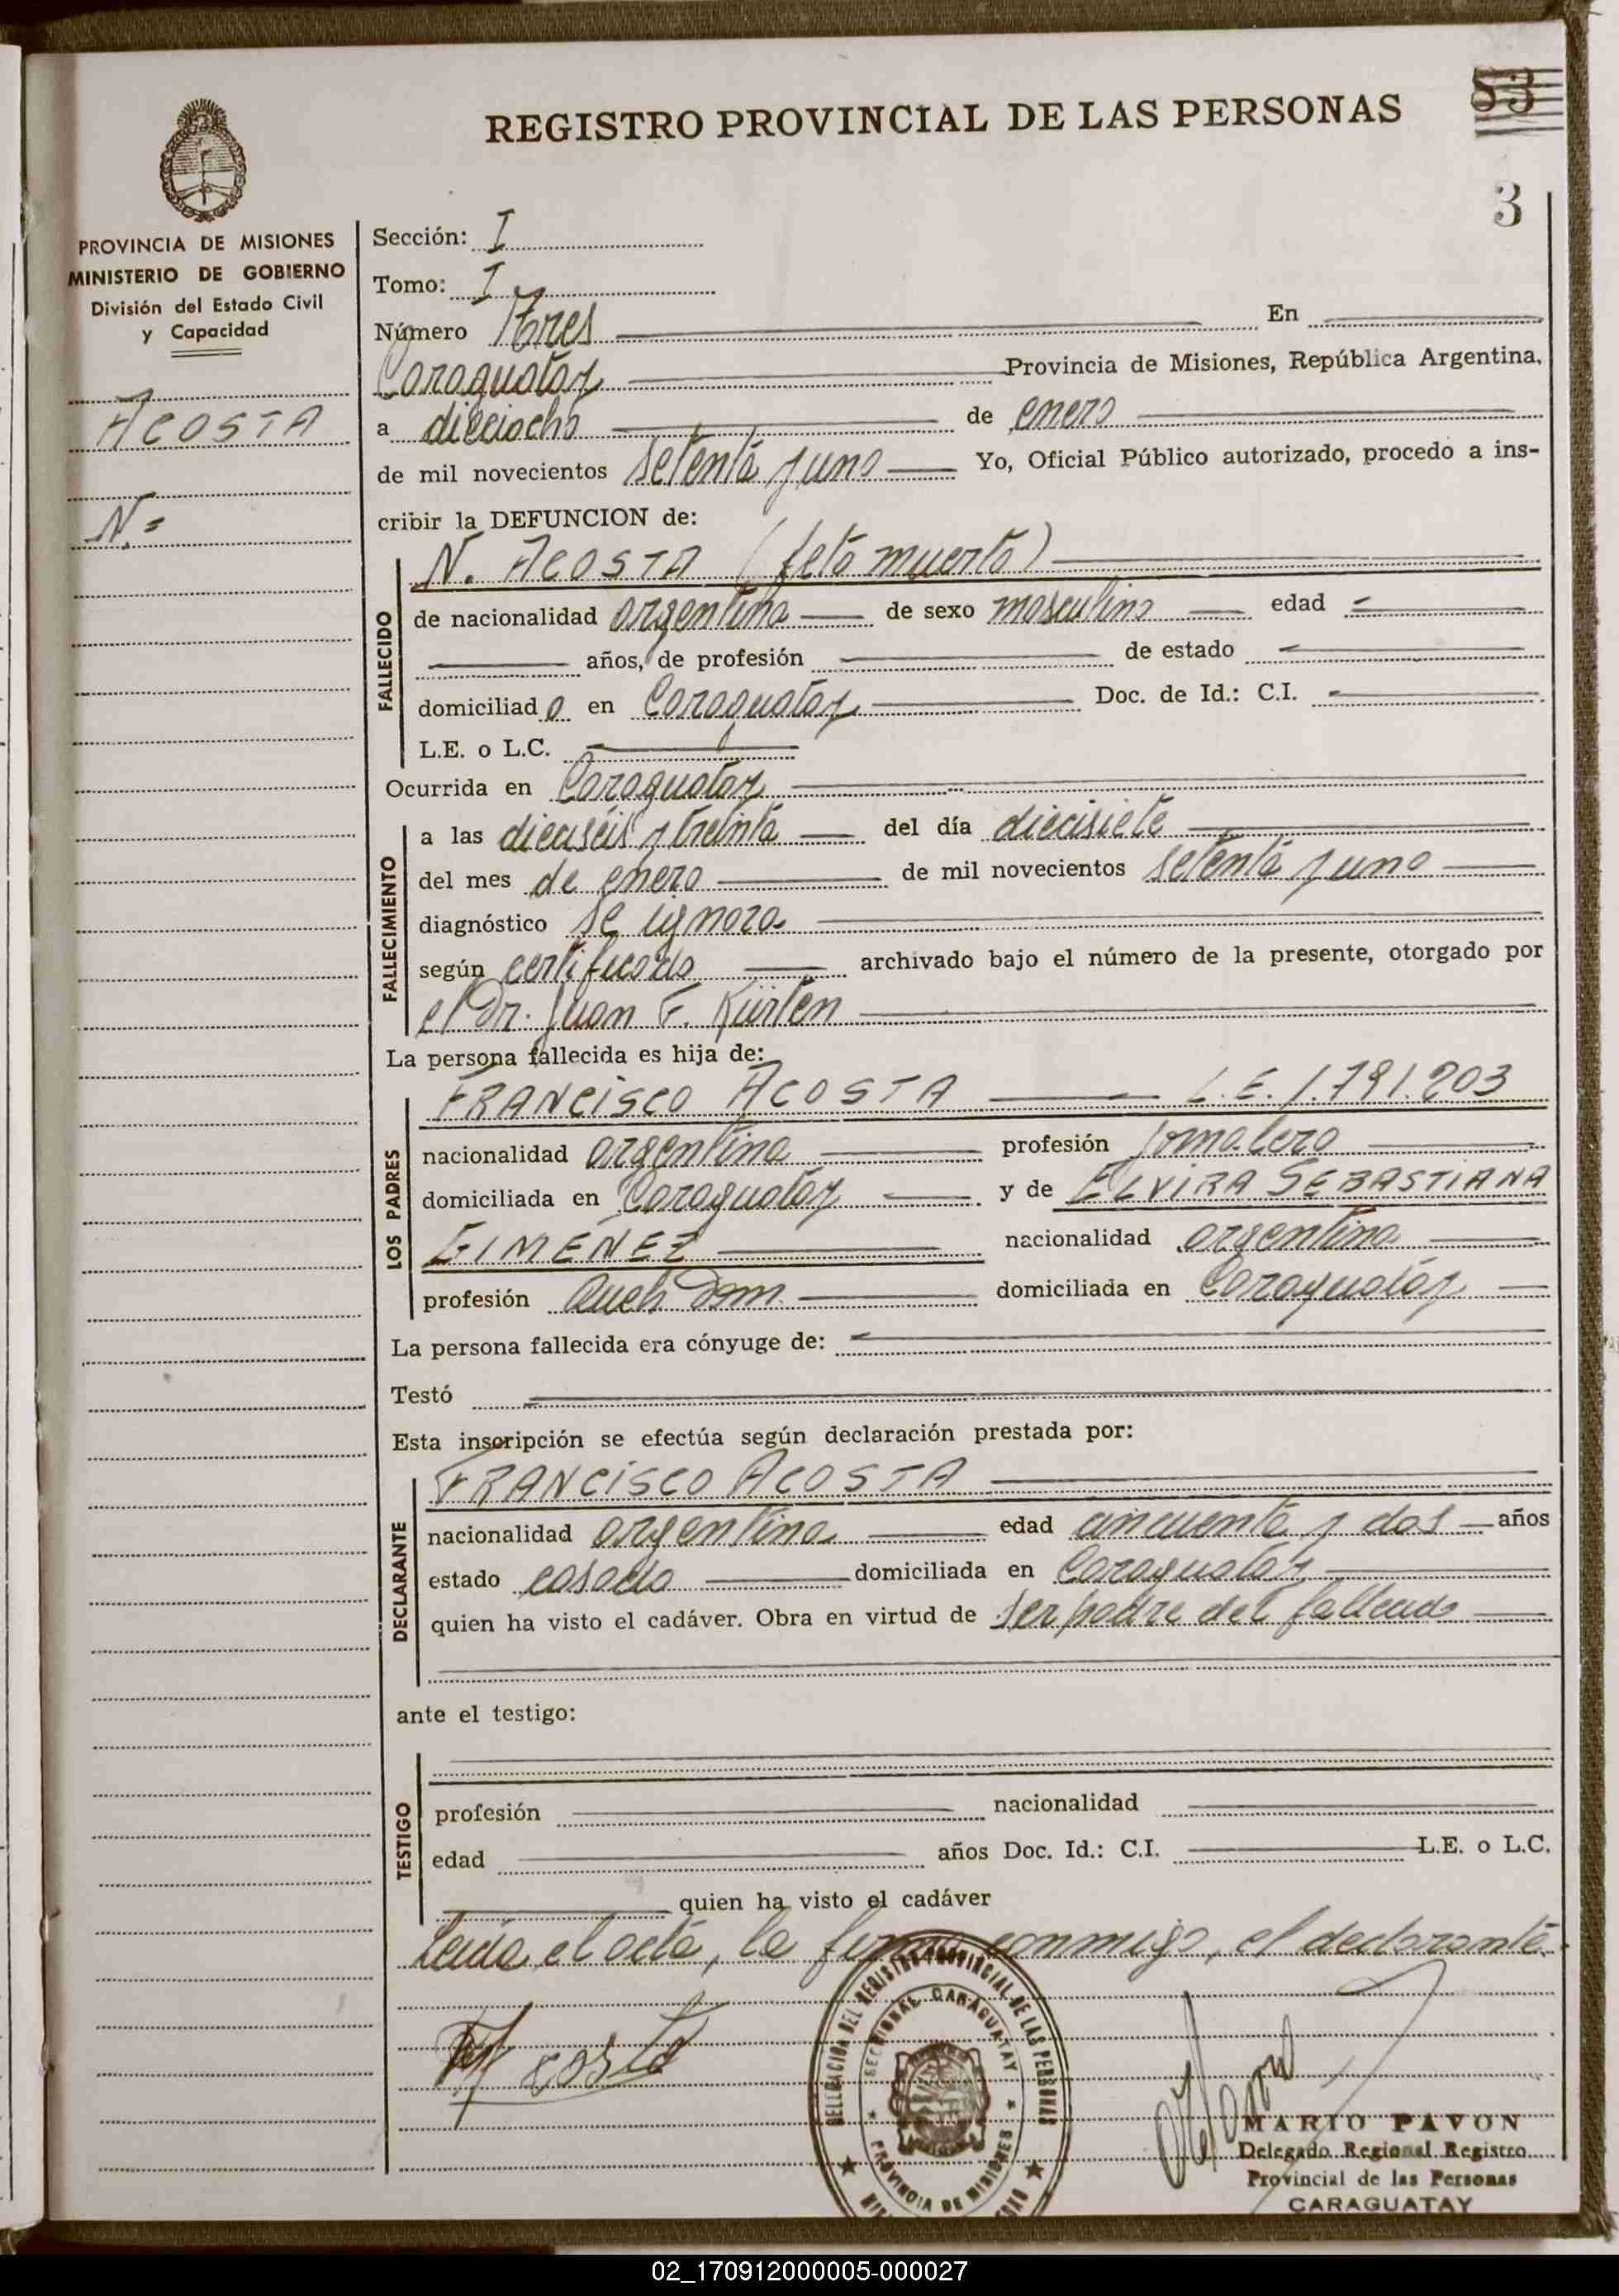 REGISTRO PROVINCIAL DE LAS PERSONAS
53
3
PROVINCIA DE MISIONES
MINISTERIO DE GOBIERNO
División del Estado Civil
y Capacidad
ACOSTA
N.=
Sección: I
Tomo: I
Número Tres En
Caraguatay Provincia de Misiones, República Argentina,
a dieciocho de enero
de mil novecientos setenta y uno Yo, Oficial Público autorizado, procedo a ins-
cribir la DEFUNCION de:
FALLECIDO
N. ACOSTA (feto muerto)
de nacionalidad argentina de sexo masculino edad
años, de profesión de estado
domiciliado en Caraguatay Doc. de Id.: C.I.
L.E. o L.C.
Ocurrida en Caraguatay
FALLECIMIENTO
a las dieciséis y treinta del día diecisiete
del mes de enero de mil novecientos setenta y uno
diagnóstico se ignora
según certificado archivado bajo el número de la presente, otorgado por
el Dr. Juan F. Kürten
La persona fallecida es hija de:
LOS PADRES
FRANCISCO ACOSTA L.E. 1.791.203
nacionalidad argentina profesión jornalero
domiciliada en Caraguatay y de ELVIRA SEBASTIANA
GIMENEZ nacionalidad argentina
profesión Queh Dom. domiciliada en Caraguatay
La persona fallecida era cónyuge de:
Testó
Esta inscripción se efectúa según declaración prestada por:
DECLARANTE
FRANCISCO ACOSTA
nacionalidad argentina edad cincuenta y dos años
estado casado domiciliada en Caraguatay
quien ha visto el cadáver. Obra en virtud de ser padre del fallecido
ante el testigo:
TESTIGO
profesión nacionalidad
edad años Doc. Id.: C.I. L.E. o L.C.
quien ha visto el cadáver
Leída el acta, la firma conmigo, el declarante.
DELEGACION DEL REGISTRO PROVINCIAL DE LAS PERSONAS
SECCIONAL CARAGUATAY
PROVINCIA DE MISIONES
MARIO PAVON
Delegado Regional Registro
Provincial de las Personas
CARAGUATAY
02_170912000005-000027